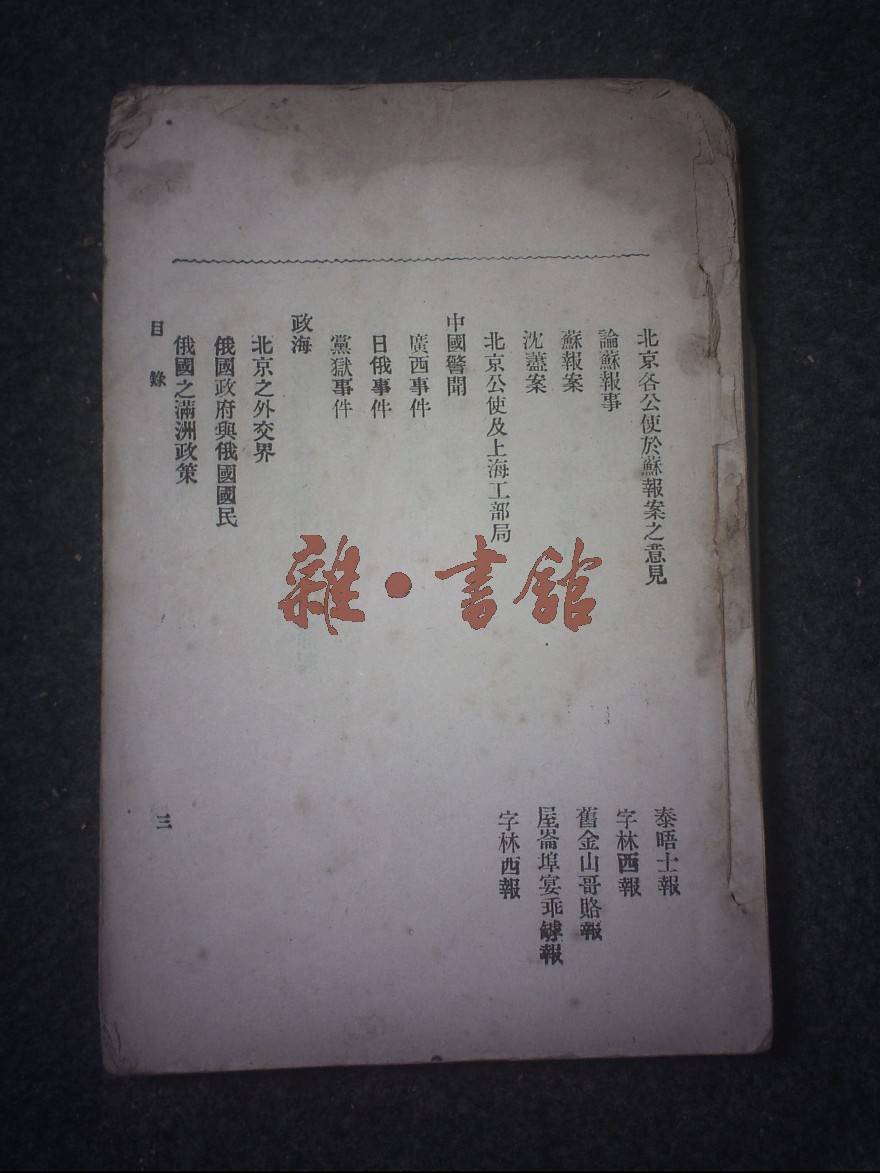 北京各公使於蘇報案之意見
泰晤士報
論蘇報事
字林西報
蘇報案
舊金山哥賂報
沈藎案
屋崙埠宴乖罅報
北京公使及上海工部局
字林西報
中國警聞
廣西事件
日俄事件
黨獄事件
政海
北京之外交界
俄國政府與俄國國民
俄國之滿洲政策
目錄
三
雜·書館